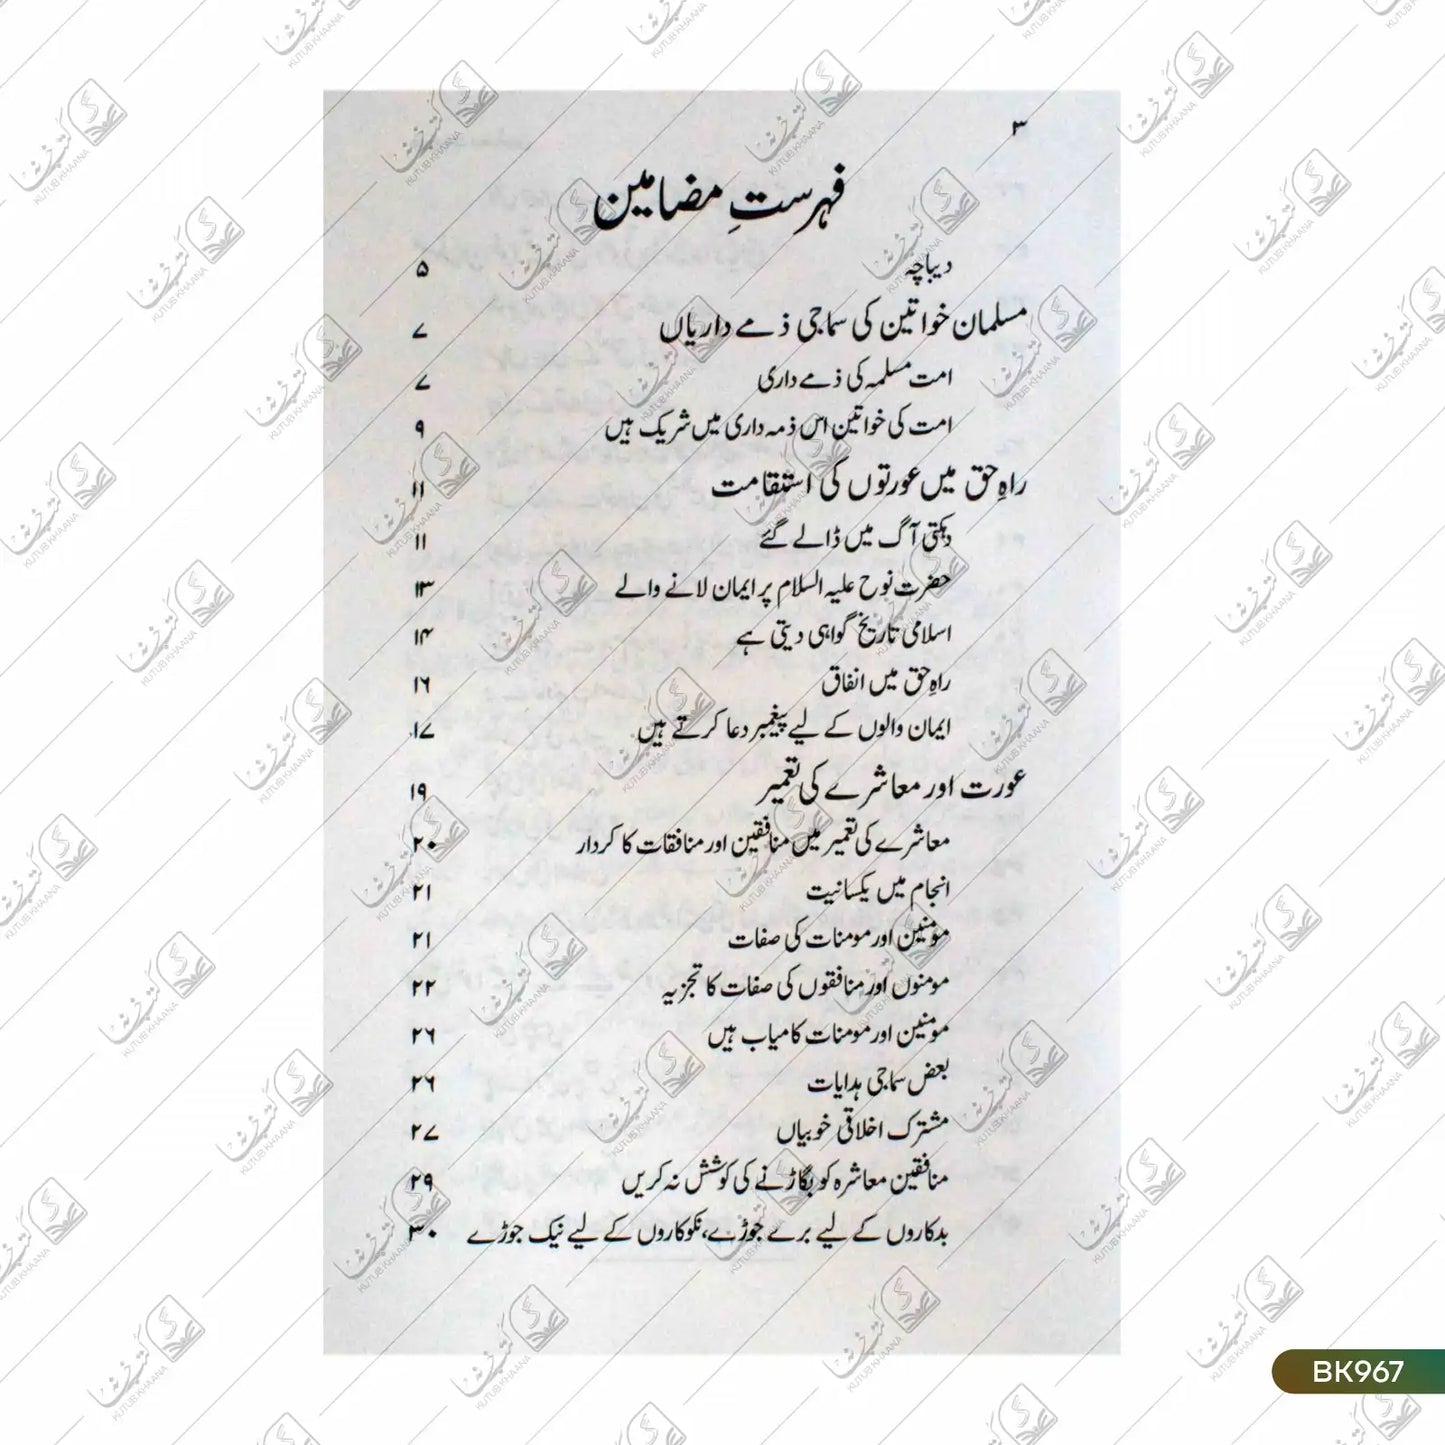 ۳
فہرستِ مضامین
دیباچہ ۵
مسلمان خواتین کی سماجی ذمے داریاں ۷
امت مسلمہ کی ذمے داری ۷
امت کی خواتین اس ذمہ داری میں شریک ہیں ۹
راہِ حق میں عورتوں کی استقامت ۱۱
دہکتی آگ میں ڈالے گئے ۱۱
حضرت نوح علیہ السلام پر ایمان لانے والے ۱۳
اسلامی تاریخ گواہی دیتی ہے ۱۴
راہِ حق میں انفاق ۱۶
ایمان والوں کے لیے پیغمبر دعا کرتے ہیں ۱۷
عورت اور معاشرے کی تعمیر ۱۹
معاشرے کی تعمیر میں منافقین اور منافقات کا کردار ۲۰
انجام میں یکسانیت ۲۱
مؤمنین اور مومنات کی صفات ۲۱
مومنوں اور منافقوں کی صفات کا تجزیہ ۲۲
مؤمنین اور مومنات کامیاب ہیں ۲۶
بعض سماجی ہدایات ۲۶
مشترک اخلاقی خوبیاں ۲۷
منافقین معاشرہ کو بگاڑنے کی کوشش نہ کریں ۲۹
بدکاروں کے لیے برے جوڑے، نکوکاروں کے لیے نیک جوڑے ۳۰
KUTUB KHAANA
BK967